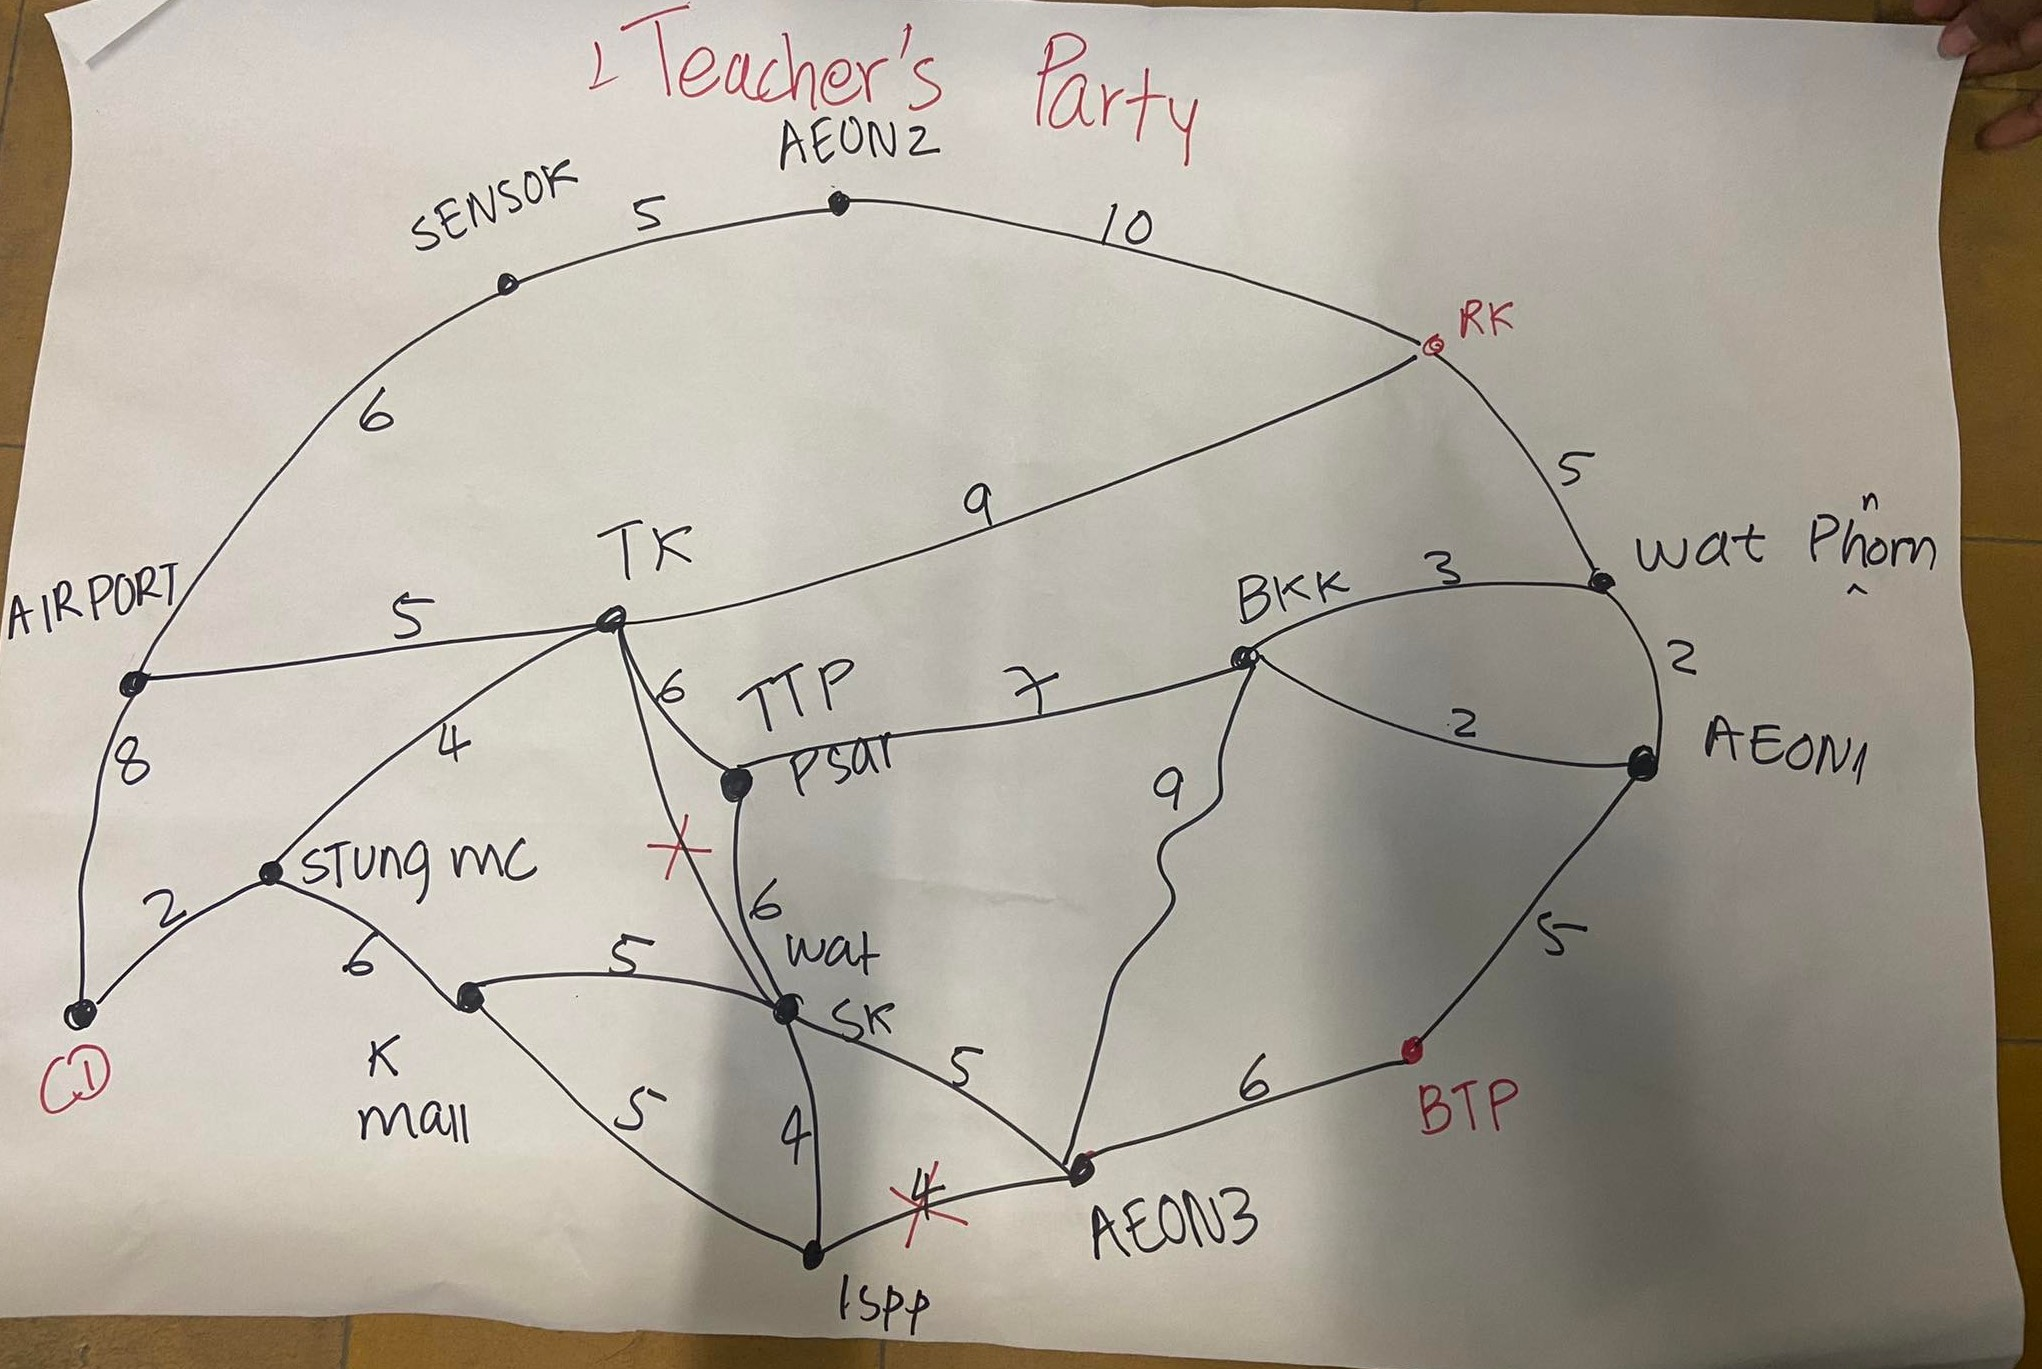 Teacher's Party
AEON2
SENSOK
5
10
RK
6
9
5
n
TK
wat Phom
^
AIRPORT
5
BKK
3
6
TTP
7
2
8
4
Psar
2
AEON1
9
STUng mC
2
6
6
5
wat
5
SK
CD
K
mall
5
5
6
BTP
4
4
AEON3
ISPP